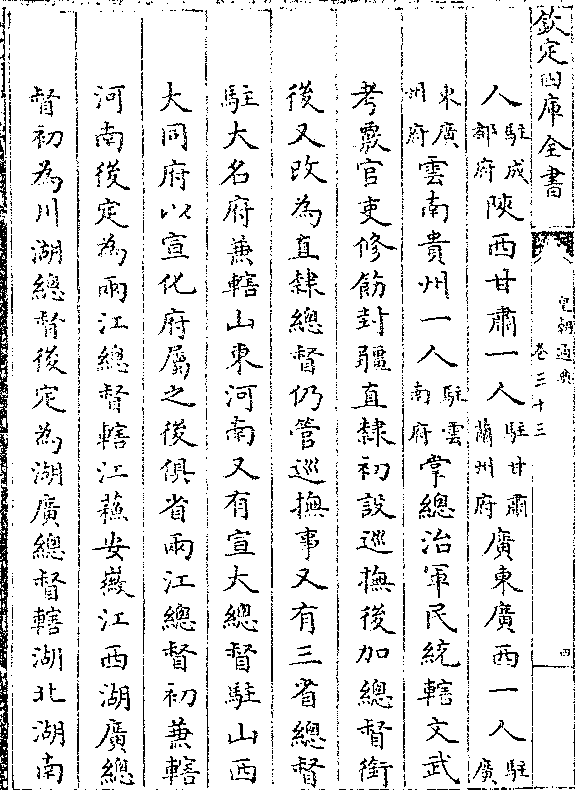 欽定四庫全書
皇朝通典 卷三十三
四
人駐成都府陝西甘肅一人駐甘肅蘭州府廣東廣西一人駐廣
東廣州府雲南貴州一人駐雲南府掌總治軍民統轄文武
考覈官吏修飭封疆直隸初設巡撫後加總督銜
後又改為直隸總督仍管巡撫事又有三省總督
駐大名府兼轄山東河南又有宣大總督駐山西
大同府以宣化府屬之後俱省兩江總督初兼轄
河南後定為兩江總督轄江蘇安徽江西湖廣總
督初為川湖總督後定為湖廣總督轄湖北湖南